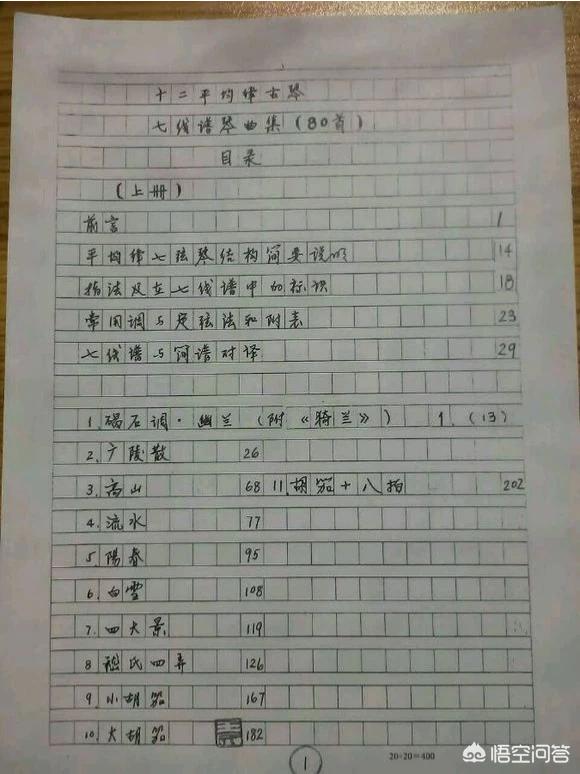 十二平均律古琴
七线谱琴曲集（80首）
目录
（上册）
前言 1
平均律七弦琴结构简要说明 14
指法及在七线谱中的标识 18
常用调与定弦法和附表 23
七线谱与简谱对译 29
1.碣石调·幽兰（附《猗兰》） 1.（13）
2.广陵散 26
3.高山 68 11.胡笳十八拍 202
4.流水 77
5.陽春 95
6.白雪 108
7.四大景 119
8 嵇氏四弄 126
9.小胡笳 167
10.大胡笳 182
1
20×20=400
悟空问答